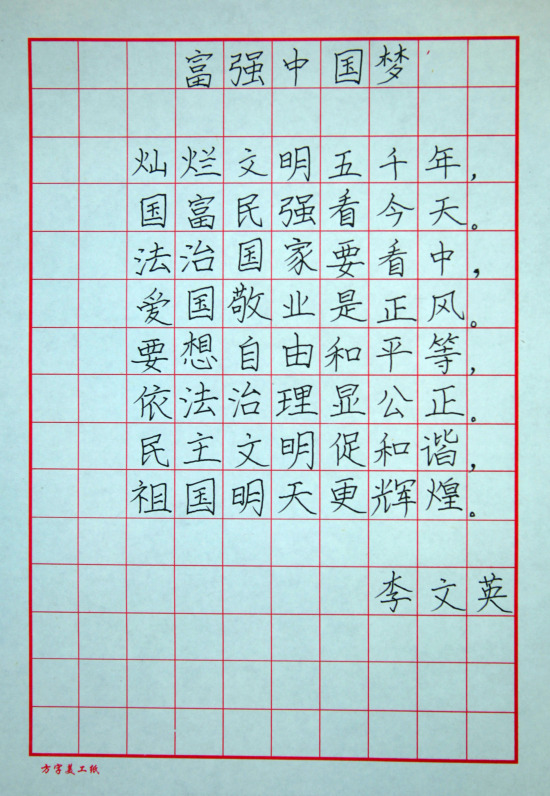 富强中国梦
灿烂文明五千年，
国富民强看今天。
法治国家要看中，
爱国敬业是正风。
要想自由和平等，
依法治理显公正。
民主文明促和谐，
祖国明天更辉煌。
李文英
方字美工纸